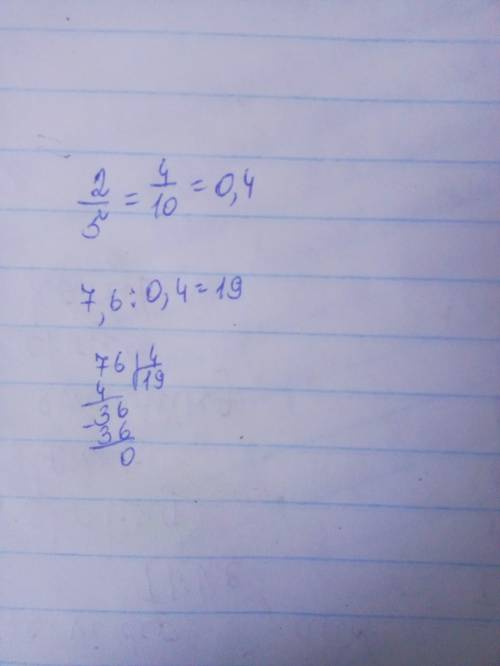 2/5 = 4/10 = 0,4
7,6 : 0,4 = 19
76 | 4
4 | 19
-36
36
0